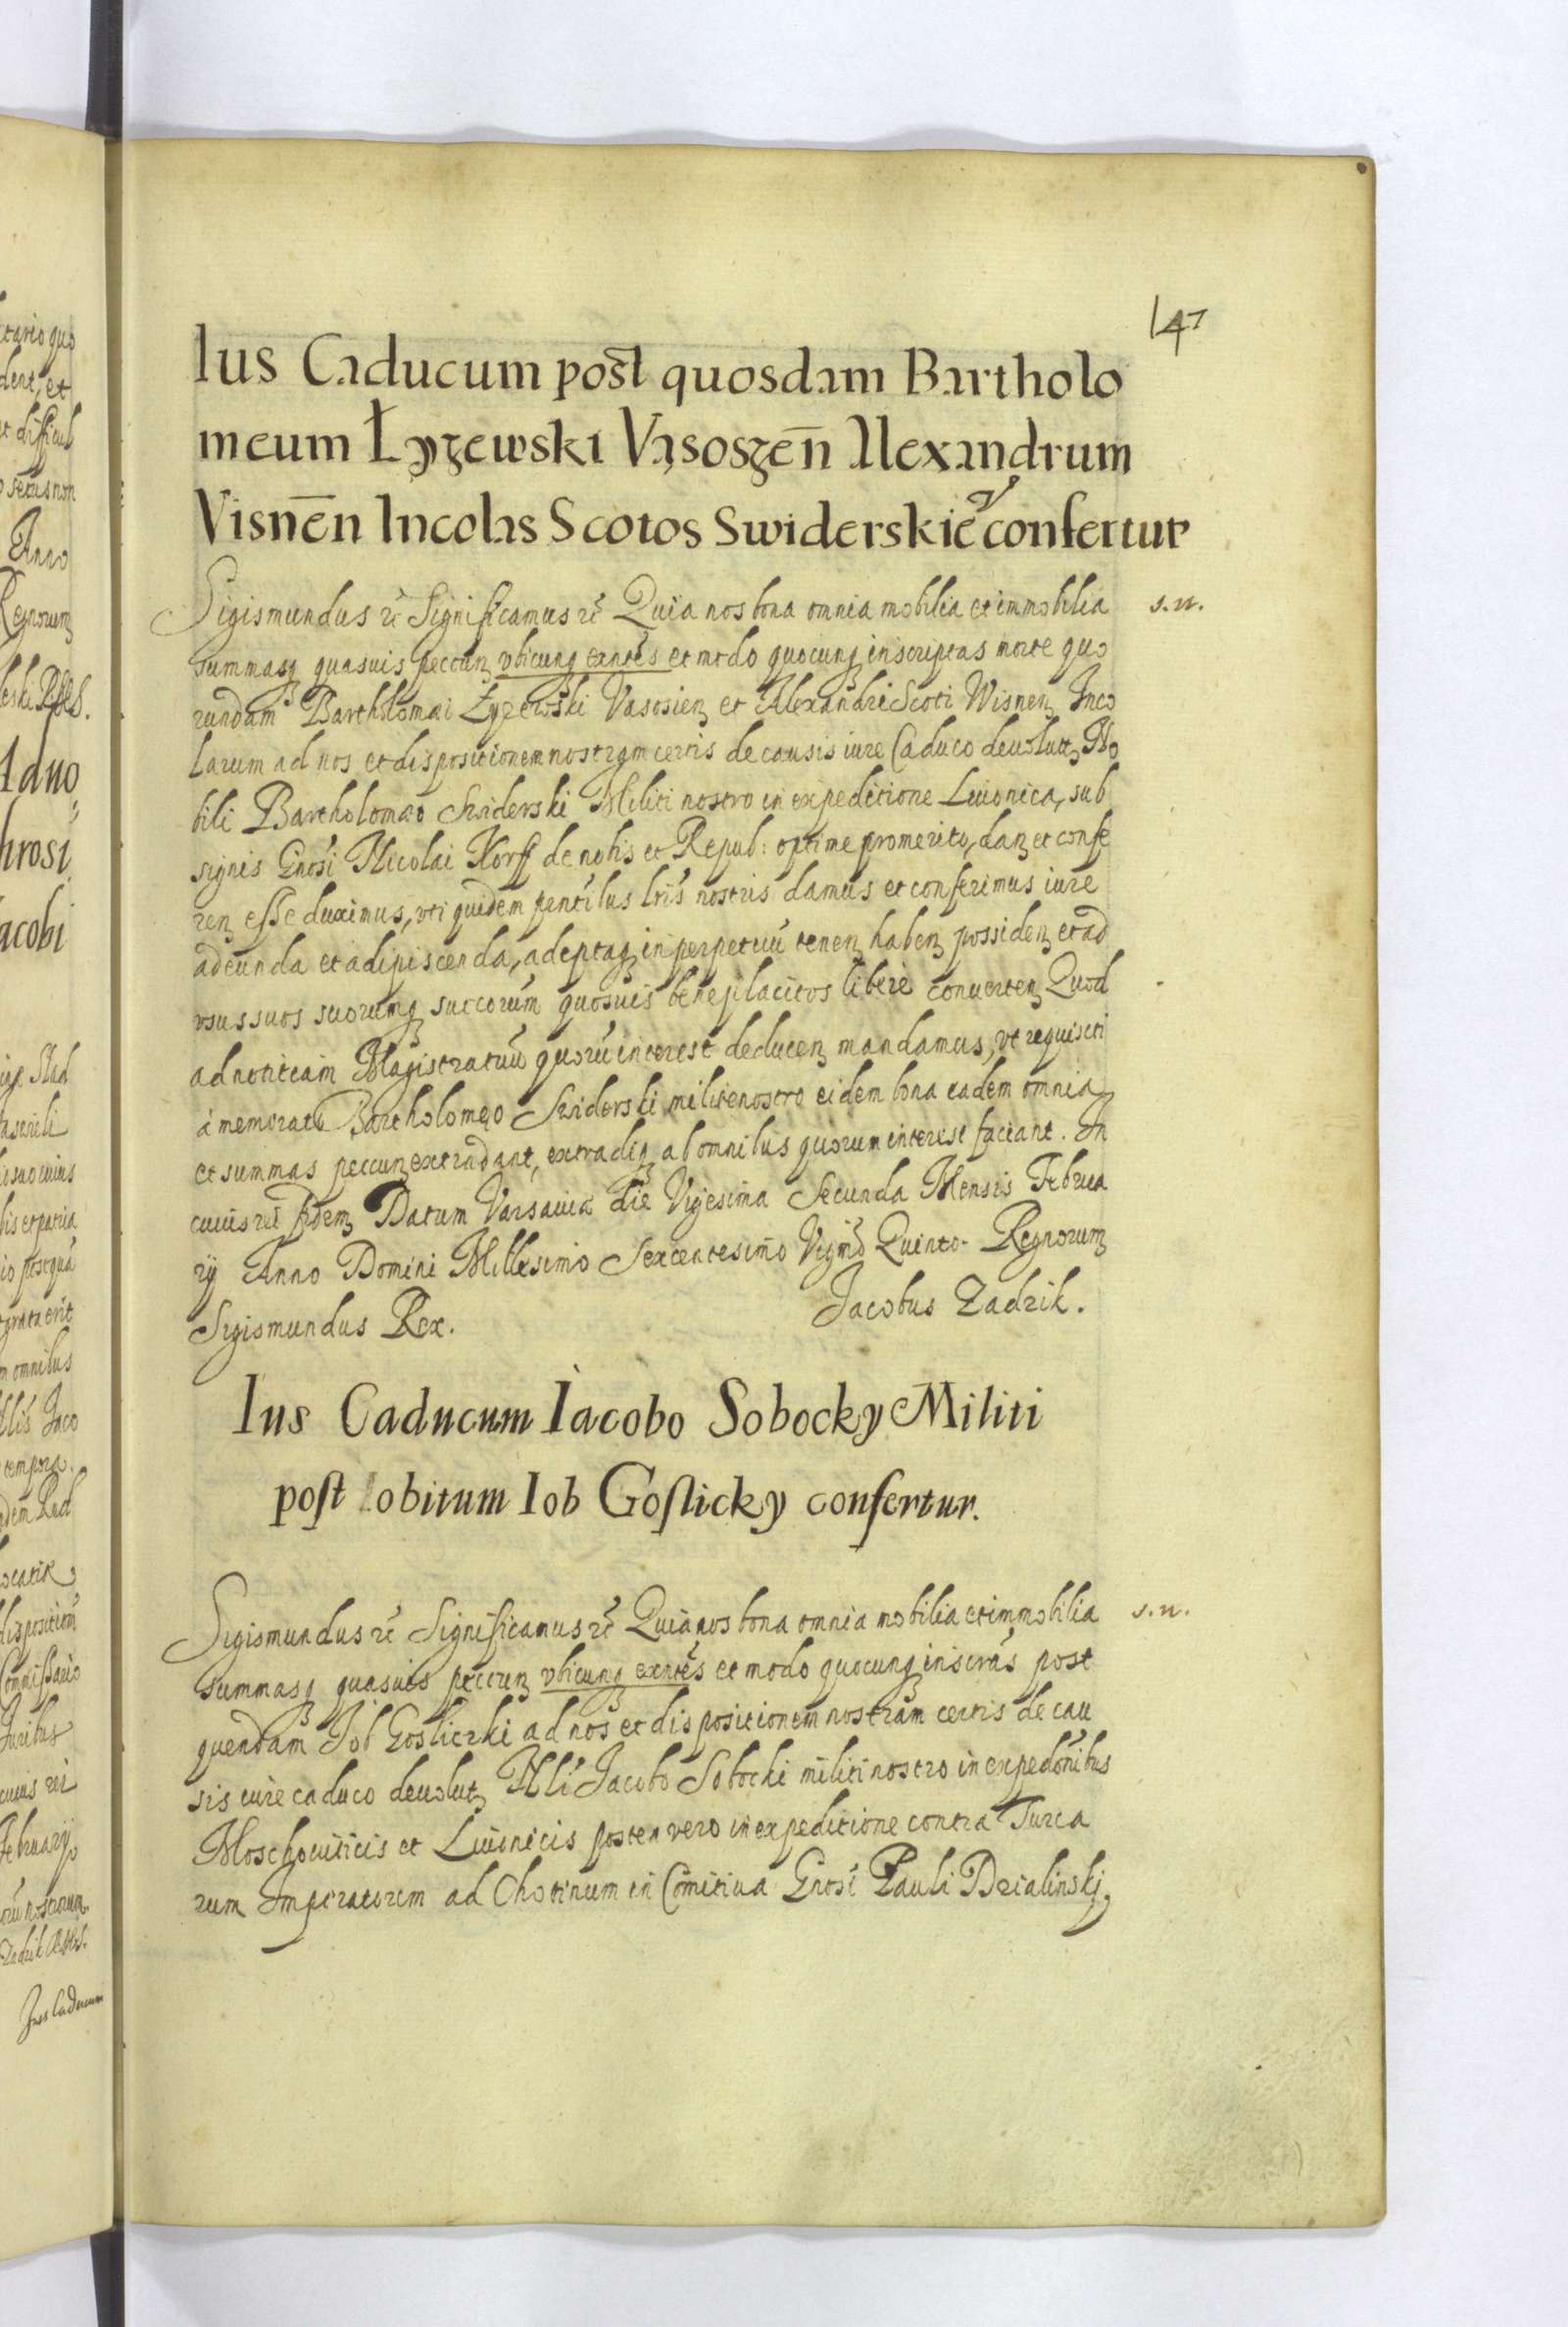 147
Ius Caducum post quosdam Bartholo
meum Łyzewski Vąsoszen̄ Alexandrum
Visnēn Incolas Scotos Swiderskiē confertur
Sigismundus rc̄ Significamus rc̄ Quia nos bona omnia mobilia et immobilia
s. n.
summasq quasuis peccun vbicunq exntēs et modo quocunq inscriptas morte quo
rundam Bartholomæi Łyzewski Vasosien et Alexandri Scoti Wisnen Inco
larum ad nos et dispositionem nostram certis de causis iure Caduco deuolut No
bili Bartholomæo Swiderski Militi nostro in expeditione Liuonica, sub
signis Gnosi Nicolai Korff de nobis et Repub: optime promerito, dan et confe
ren esse duximus, vti quidem pentibus lris nostris damus et conferimus iure
adeunda et adipiscenda, adeptaq in perpetuū tenen haben possiden et ad
vsus suos suorumq succorum quosuis beneplacitos libere conuerten Quod
ad notitiam Magistratuū quorū interest deducen mandamus, vt requisiti
à memorato Bartholomęo Swiderski milite nostro eidem bona eadem omnia
et summas peccun extradant, extradiq ab omnibus quorum interest faciant. In
cuius rei fidem Datum Varsauiæ die Vigesima Secunda Mensis Februa
rij Anno Domini Millesimo Sexcentesimo Vigmo Quinto. Regnorum
Sigismundus Rex. Jacobus Zadzik.
Ius Caducum Iacobo Sobocky Militi
post obitum Iob Goslicky confertur.
Sigismundus rc̄ Significamus rc̄ Quia nos bona omnia mobilia et immobilia
s. n.
summasq quasuis peccun vbicunq exntēs et modo quocunq inscras post
quendam Job Gosliczki ad nos et dispositionem nostram certis de cau
sis iure caduco deuolut Nli Jacobo Sobocki militi nostro in expedonibus
Moschouiticis et Liuonicis postea vero in expeditione contra Turca
rum Imperatorem ad Chotinum in Comitiua Gnosi Pauli Dzialinskj,